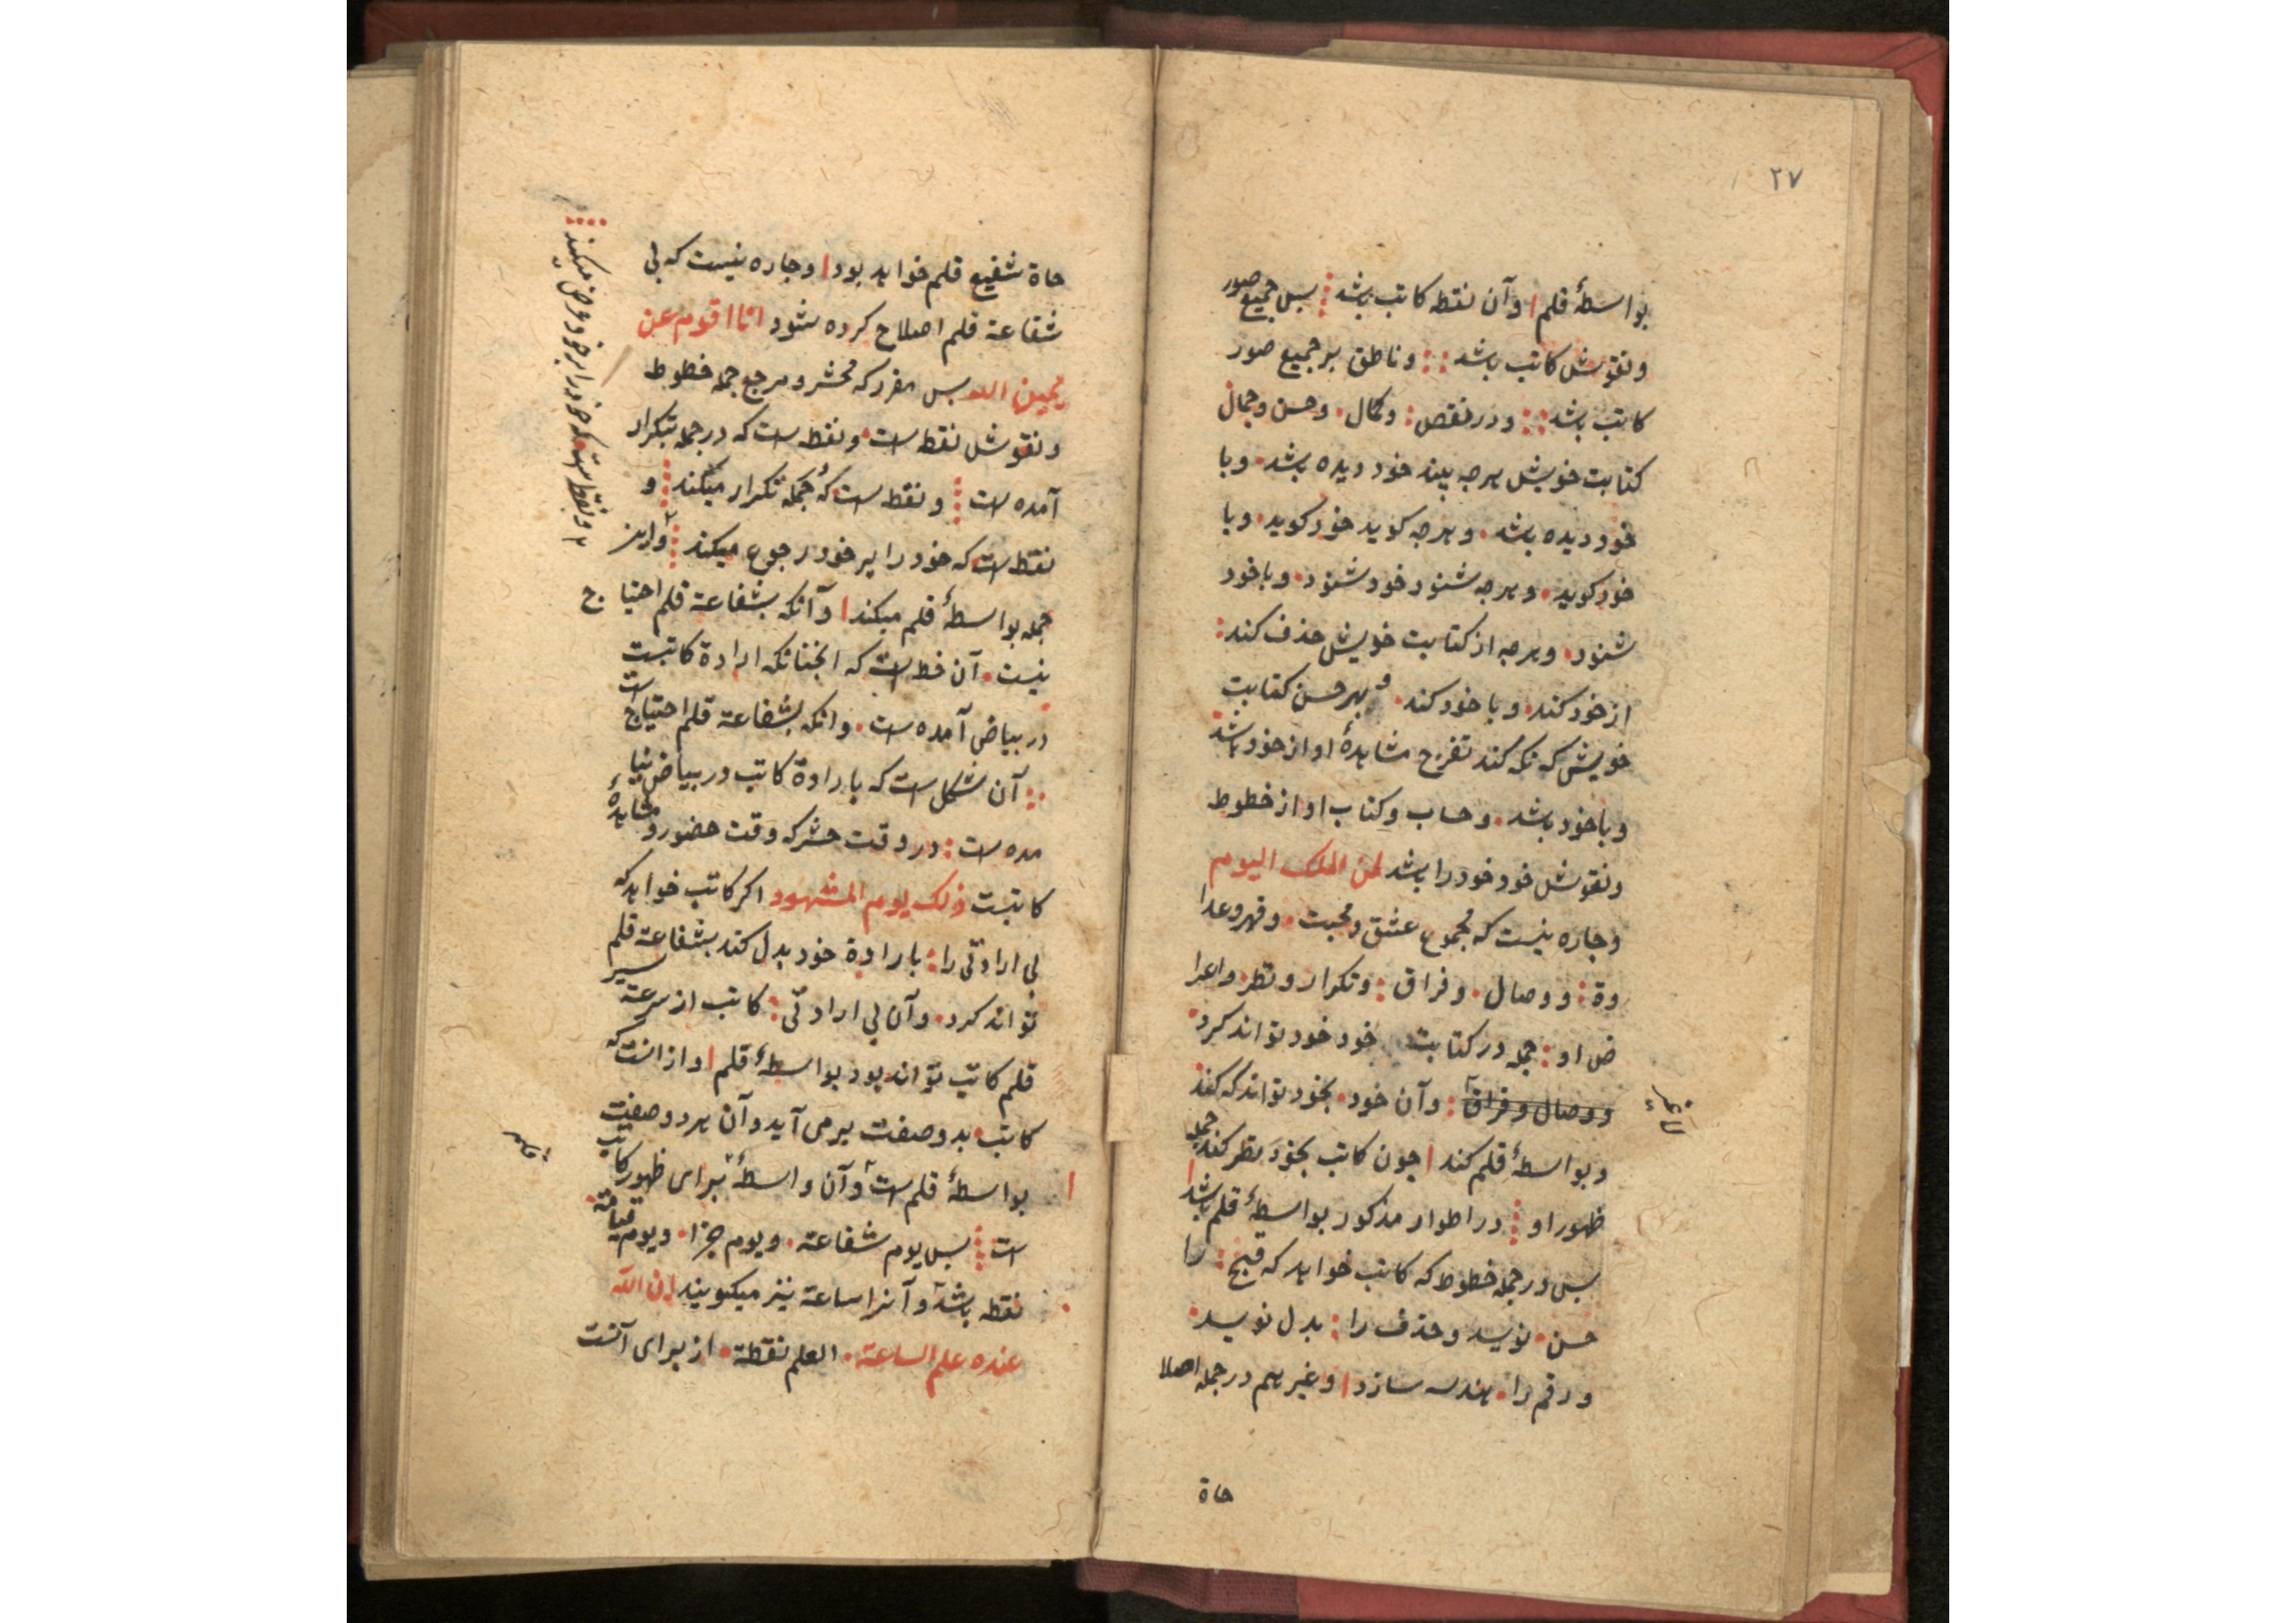 ٢٧
بواسطهٔ قلم ا وآن نقطه كاتب باشد بس جميع صور
ونقوش كاتب باشد وناطق بر جميع صور
كاتب باشد ودر نقص وكمال وحسن وجمال
كتابت خويش هرجه بيند خود ديده باشد وبا
خود ديده باشد وهرجه كويد خود كويد وبا
خود كويد وهرجه شنود خود شنود وباخود
شنود وهرجه از كتابت خويش حذف كند
از خود كند وبا خود كند و بهر حسن كتابت
خويش كه نكه كند تفرج مشاهدهٔ او از خود باشد
وباخود باشد وحساب وكتاب او از خطوط
ونقوش خود خود را باشد لمن الملك اليوم
وجاره نيست كه مجموع عشق ومحبت وقهر وعدا
وة ووصال وفراق وتكرار ونظر واعرا
ض او جمله در كتابت خود خود تواند كرد
ووصال وفراق وآن خود بخود تواند كه كند
وبواسطهٔ قلم كند ا جون كاتب بخود نظر كند جمله
ظهور او در اطوار مذكور بواسطهٔ قلم باشد ا
بس در جمله خطوط كه كاتب خواهد كه قبيح را
حسن نويسد وحذف را بدل نويسد
ورقم را هندسه سازد ا وغير هم در جمله اصلا
حاة
حاة شفيع قلم خواهد بود ا وجاره نيست كه بى
شفاعة قلم اصلاح كرده شود انا اقوم عن
يمين الله بس مفرد كه محشر ومرجع جمله خطوط
ونقوش نقطه است ونقطه است كه در جمله بتكرار
آمده است ونقطه است كه جمله تكرار ميكند و
نقطه است كه خود را بر خود رجوع ميكند واين
جمله بواسطهٔ قلم ميكند ا وآنكه بشفاعة قلم احتياج
نيست آن خط است كه انجنانكه ارادة كاتبست
در بياض آمده است وانكه بشفاعة قلم احتياج است
آن شكل است كه بارادة كاتب در بياض نيا
مده است در وقت حشر كه وقت حضور ومشاهدهٔ
كاتبست ذلك يوم المشهود اكر كاتب خواهد كه
بى ارادتى را بارادة خود بدل كند بشفاعة قلم
تواند كرد وآن بى ارادتى كاتب از سرعة سير
قلم كاتب تواند بود بواسطهٔ قلم ا واز انست كه
كاتب بدو صفت برمى آيد وآن هردو صفت
بواسطهٔ قلم است وآن واسطهٔ براى ظهور كاتب
است بس يوم شفاعة ويوم جزا ويوم قيامة
نقطه باشد وآنرا ساعة نيز ميكويند ان الله
عنده علم الساعة العلم نقطة از براى آنست
ونقطه است كه خود را بر خود عرض ميكند